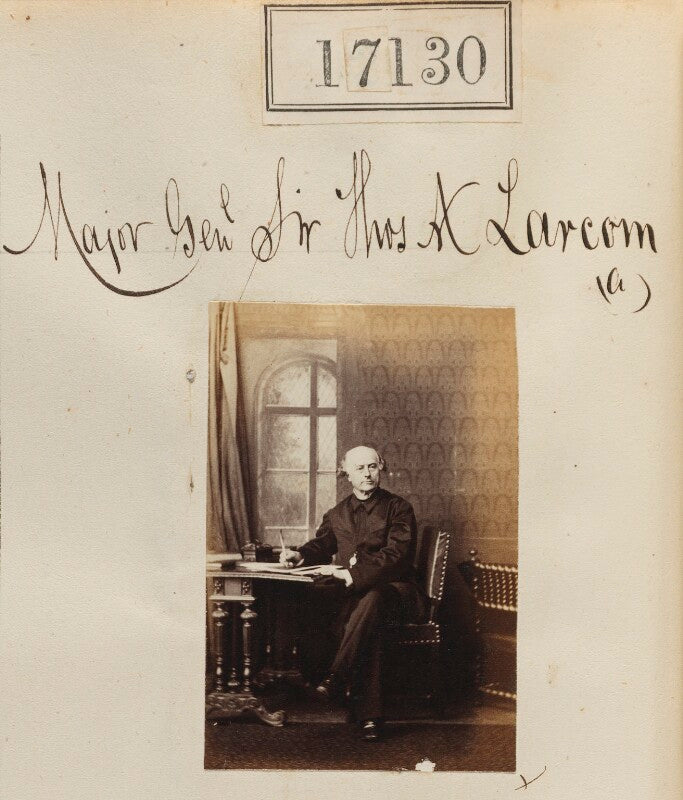 17130
Major Genl Sir Thos A Larcom
(a)